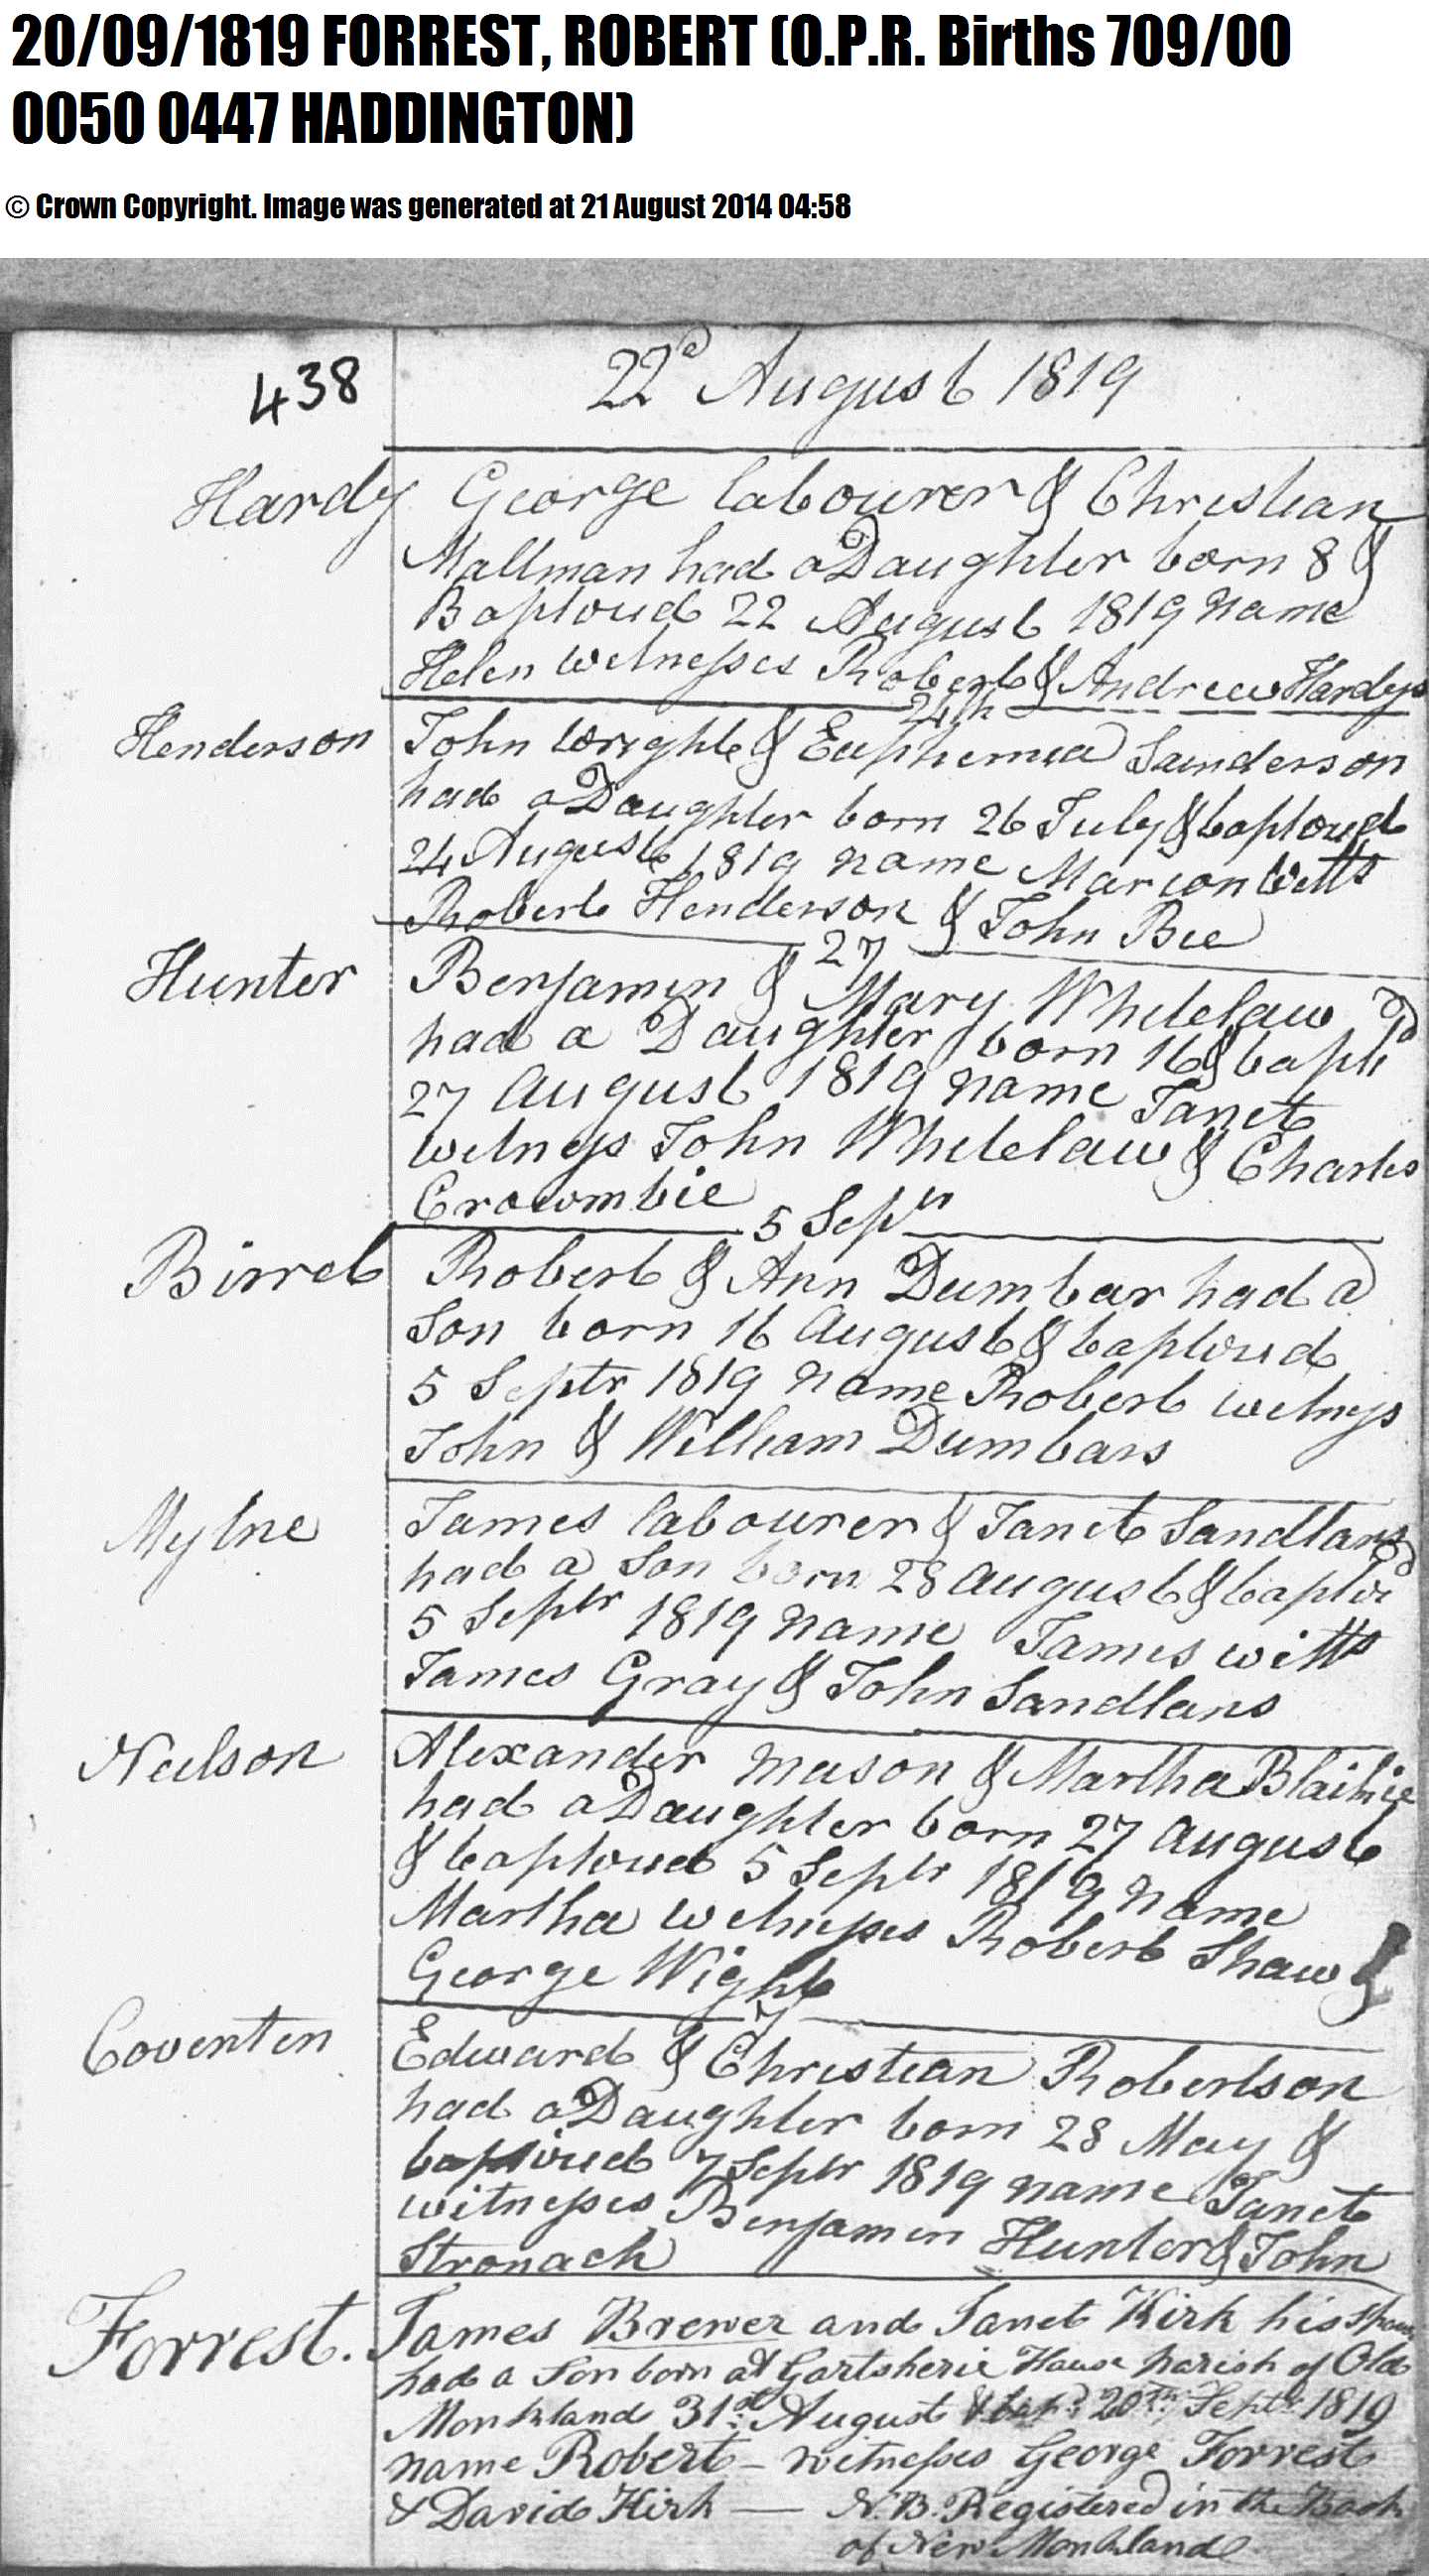 20/09/1819 FORREST, ROBERT (O.P.R. Births 709/00
0050 0447 HADDINGTON)
© Crown Copyright. Image was generated at 21 August 2014 04:58
438
22d August 1819
Hardy George labourer & Christian
Mallman had a Daughter born 8 &
Baptized 22 August 1819 name
Helen witnesses Robert & Andrew Hardys
24th
Henderson John Wright & Euphemia Sanderson
had a Daughter born 26 July & baptized
24 August 1819 name Marion Witts
Robert Henderson & John Bee
27
Hunter Benjamin & Mary Whitelaw
had a Daughter born 16 & baptd
27 August 1819 name Janet
witness John Whitelaw & Charles
Crowmbie
5 Sepr
Birrel Robert & Ann Dumbar had a
Son born 16 August & baptized
5 Septr 1819 name Robert witness
John & William Dumbars
Mylne James labourer & Janet Sandlans
had a Son born 28 August & baptizd
5 Septr 1819 name James witts
James Gray & John Sandlans
Neilson Alexander mason & Martha Blaikie
had a Daughter born 27 August
& baptized 5 Septr 1819 name
Martha witnesses Robert Shaw &
George Wight
7
Coventen Edward & Christian Robertson
had a Daughter born 28 May &
baptized 7 Septr 1819 name Janet
witnesses Benjamin Hunter & John
Stronach
Forrest. James Brewer and Janet Kirk his Spouse
had a Son born at Gartsherie House parish of Old
Monkland 31st August & bapd 20th Septr 1819
name Robert – witnesses George Forrest
& David Kirk — N.B. Registered in the Book
of New Monkland